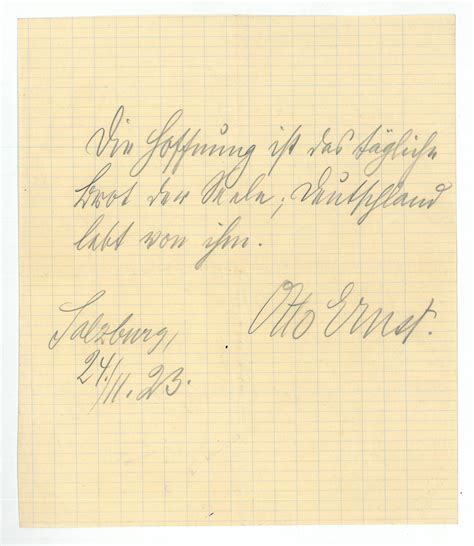 Die Hoffnung ist das tägliche
Brot der Seele; Deutschland
lebt von ihm.
Otto Ernst.
Salzburg,
24./11. 23.